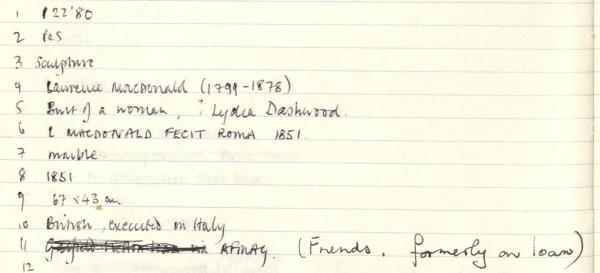 1 122'80
2 PeS
3 Sculpture
4 Laurence Macdonald (1799-1878)
5 Bust of a woman, ? Lydia Dashwood.
6 L MACDONALD FECIT ROMA 1851.
7 marble
8 1851
9 67 x 43 cm
10 British, executed in Italy
11 (Friends. formerly on loan)
12